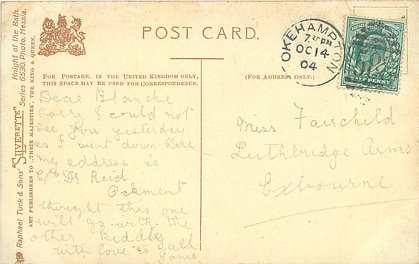 POST CARD.
FOR POSTAGE, IN THE UNITED KINGDOM ONLY,
THIS SPACE MAY BE USED FOR CORRESPONDENCE.
(FOR ADDRESS ONLY).
Raphael Tuck & Sons' "SILVERETTE" Knight of the Bath.
Series 6530 Photo, Hessia.
ART PUBLISHERS TO THEIR MAJESTIES, THE KING & QUEEN.
OKEHAMPTON
7.30PM
OC 14
04
Dear Blanche
Sorry I could not
see you yesterday
as I went down here
my address is
c/o Dr Reid
Oakment
thought this one
will go with the
other kiddy
with love to all
Miss Fairchild
Luthbridge Arms
Exbourne